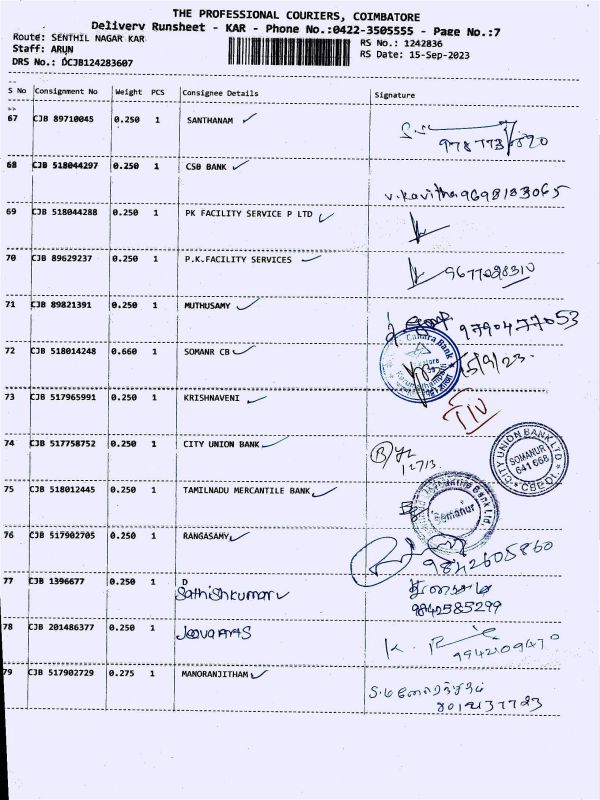 THE PROFESSIONAL COURIERS, COIMBATORE
Delivery Runsheet - KAR - Phone No.:0422-3505555 - Page No.:7
Route: SENTHIL NAGAR KAR
RS No.: 1242836
Staff: ARUN
RS Date: 15-Sep-2023
DRS No.: DCJB124283607
S No Consignment No Weight PCS Consignee Details Signature
>>
67 CJB 89710045 0.250 1 SANTHANAM
68 CJB 518044297 0.250 1 CSB BANK
v.kavitha 9698183065
69 CJB 518044288 0.250 1 PK FACILITY SERVICE P LTD
70 CJB 89629237 0.250 1 P.K.FACILITY SERVICES
9677098310
71 CJB 89821391 0.250 1 MUTHUSAMY
9790477053
72 CJB 518014248 0.660 1 SOMANR CB
Canara Bank
15/9/23
73 CJB 517965991 0.250 1 KRISHNAVENI
74 CJB 517758752 0.250 1 CITY UNION BANK
CITY UNION BANK LTD
SOMANUR
641 668
75 CJB 518012445 0.250 1 TAMILNADU MERCANTILE BANK
Somanur
76 CJB 517902705 0.250 1 RANGASAMY
9842605860
77 CJB 1396677 0.250 1 D
Sathishkumar
9842585299
78 CJB 201486377 0.250 1
9942109470
79 CJB 517902729 0.275 1 MANORANJITHAM